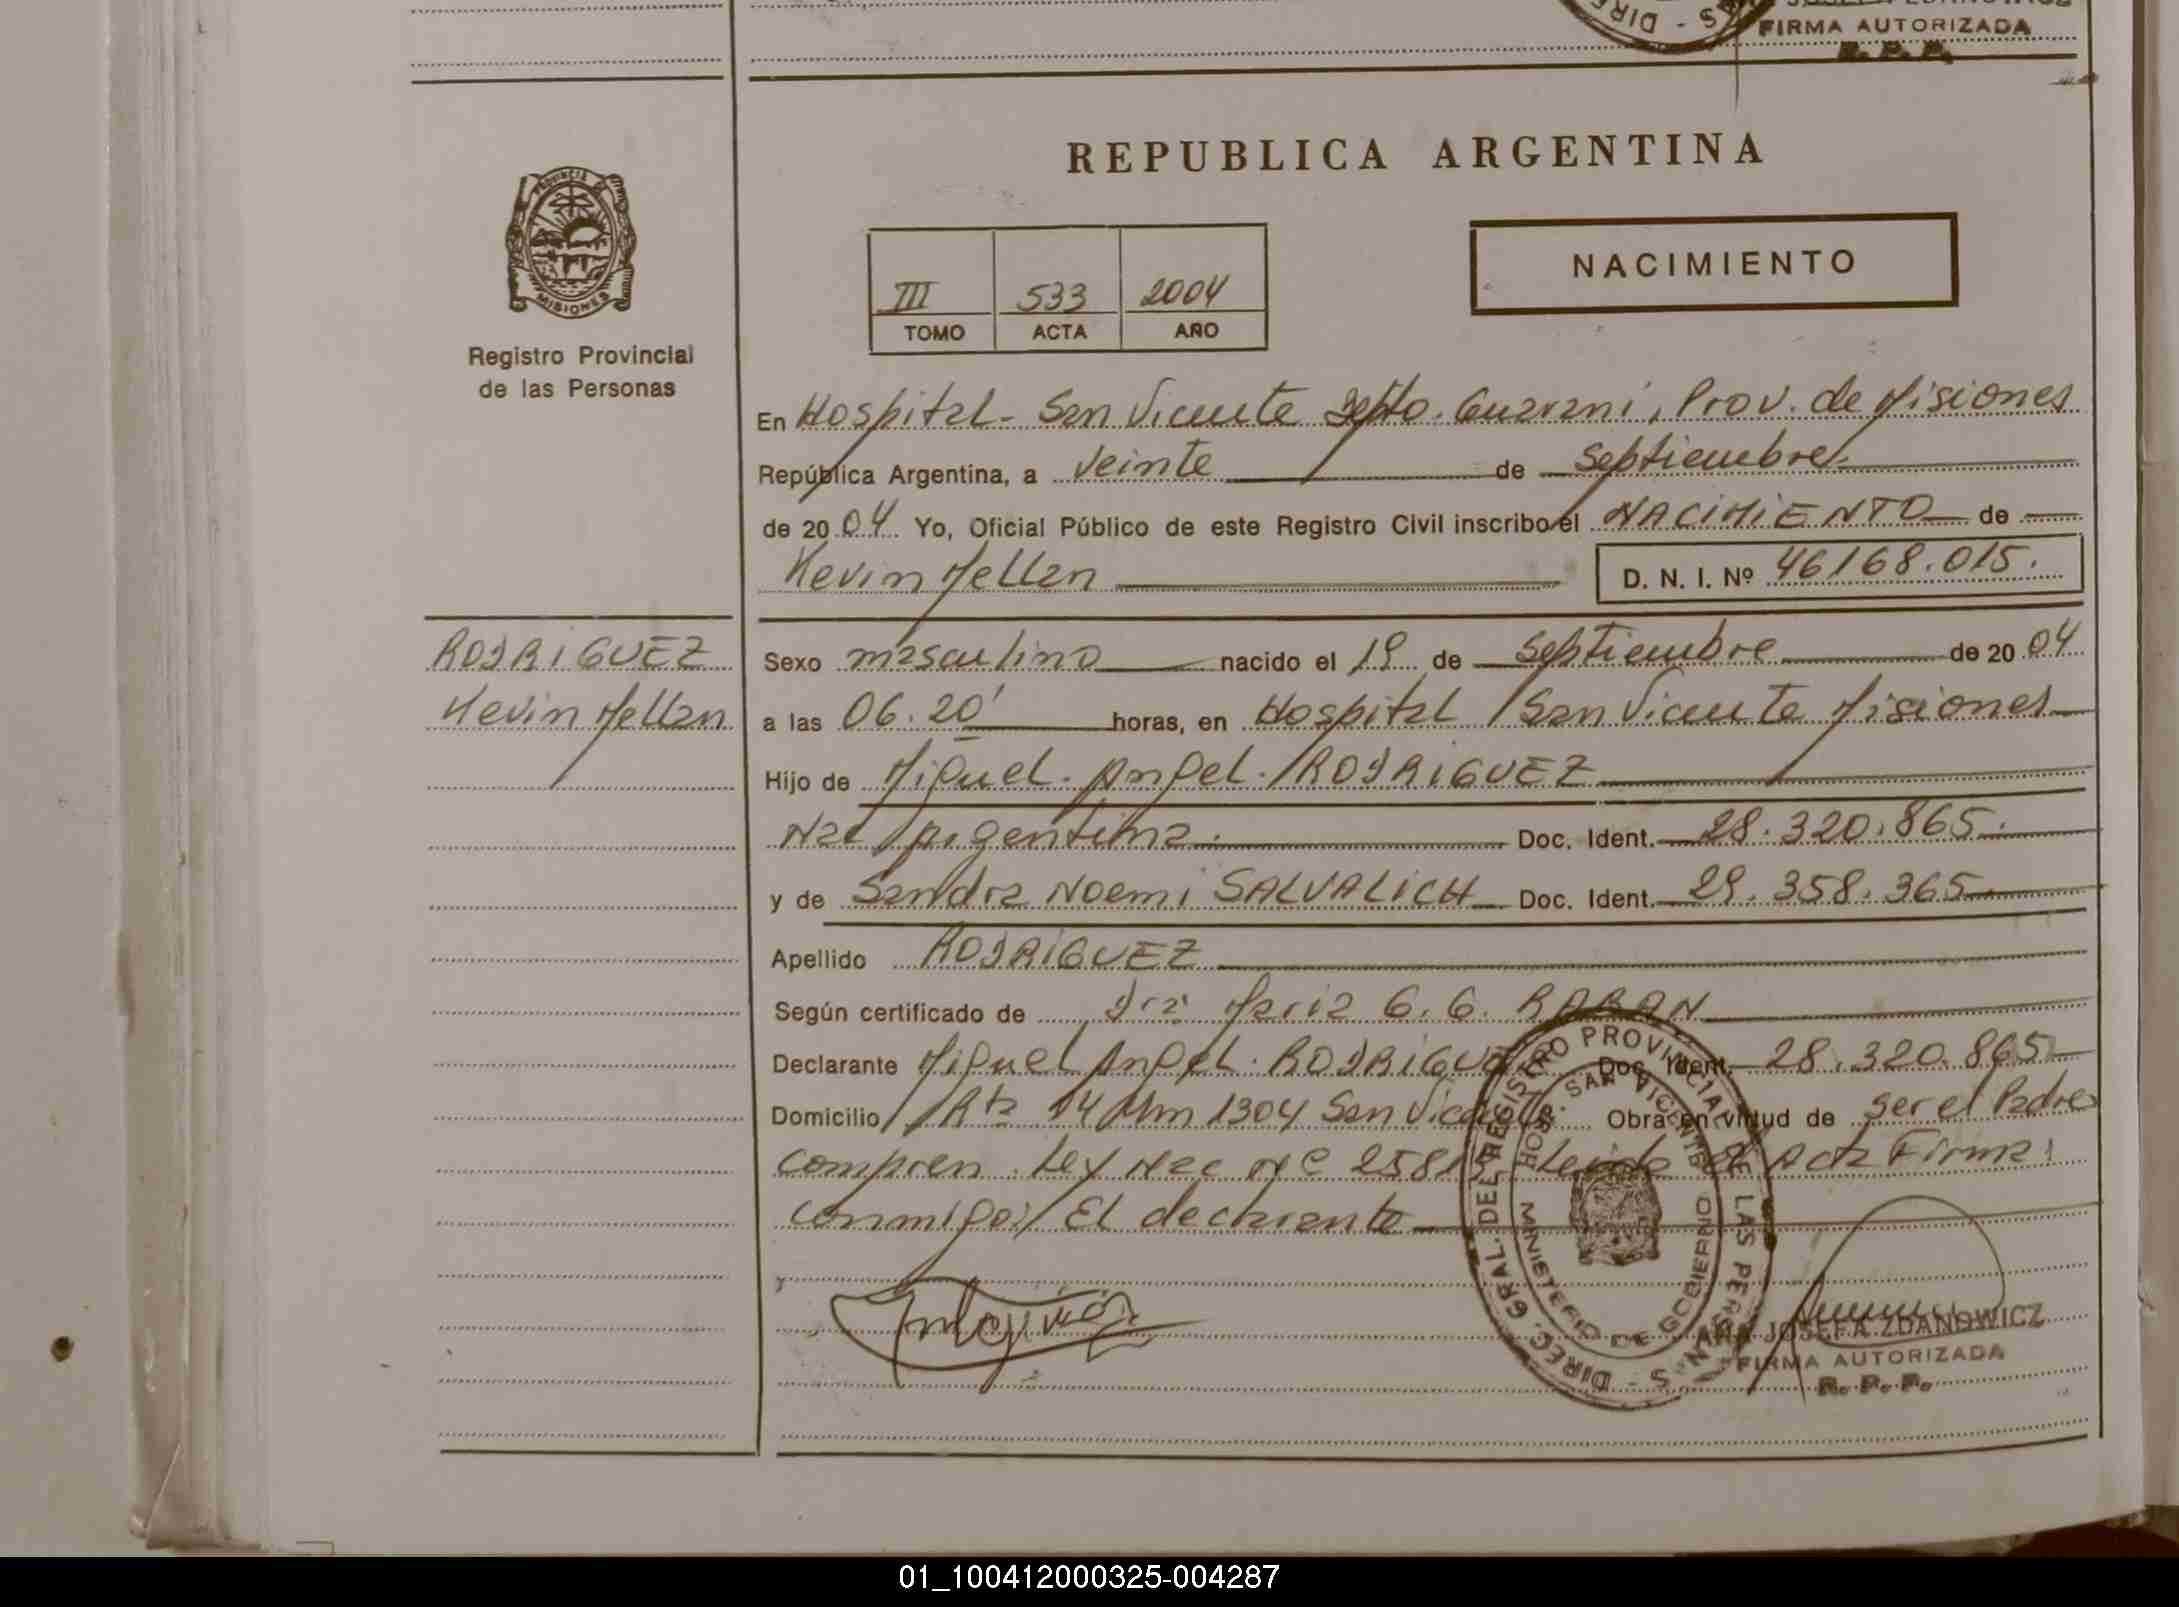 DIREC
FIRMA AUTORIZADA
R. P. P.
REPUBLICA ARGENTINA
PROVINCIA DE
MISIONES
Registro Provincial
de las Personas
NACIMIENTO
III 533 2004
TOMO ACTA AÑO
En Hospital - San Vicente Dpto. Guaraní, Prov. de Misiones
República Argentina, a Veinte de Septiembre
de 20 04 Yo, Oficial Público de este Registro Civil inscribo el NACIMIENTO de
Kevin Mellan D. N. I. Nº 46168.015.
RODRIGUEZ
Kevin Mellan
Sexo masculino nacido el 19 de Septiembre de 20 04
a las 06.20' horas, en Hospital San Vicente Misiones
Hijo de Miguel Angel RODRIGUEZ
Nac Argentina. Doc. Ident. 28.320.865.
y de Sandra Noemi SALVALICH Doc. Ident. 29.358.365
Apellido RODRIGUEZ
Según certificado de Dra Maria G. G. RABAN
Declarante Miguel Angel RODRIGUEZ Doc. Ident. 28.320.865
Domicilio Rta 14 Km 1304 San Vicente Obra en virtud de ser el Padre
Compren. Ley Nac Nº Leida el Acta Firma
conmigo: El declarante
DIREC. GRAL. DEL REGISTRO PROVINCIAL DE LAS PERSONAS
HOSP. SAN VICENTE
MINISTERIO DE GOBIERNO
ANA JOSEFA ZDANOWICZ
FIRMA AUTORIZADA
R. P. P.
01_100412000325-004287